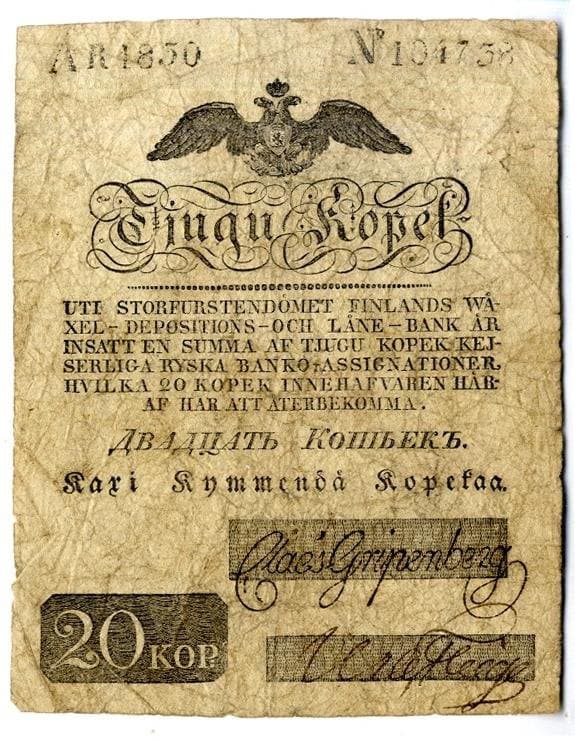 AR 1830 No 104738
Tjugu Kopek
UTI STORFURSTENDÖMET FINLANDS WÄ-
XEL-DEPOSITIONS-OCH LÅNE-BANK ÄR
INSATT EN SUMMA AF TJUGU KOPEK KEJ-
SERLIGA RYSKA BANKO-ASSIGNATIONER,
HVILKA 20 KOPEK INNEHAFVAREN HÄR-
AF HAR ATT ÅTERBEKOMMA.
ДВАДЦАТЬ КОПѢЕКЪ.
Kaxi Kymmendå Kopekaa.
Claës Gripenberg
20 KOP.